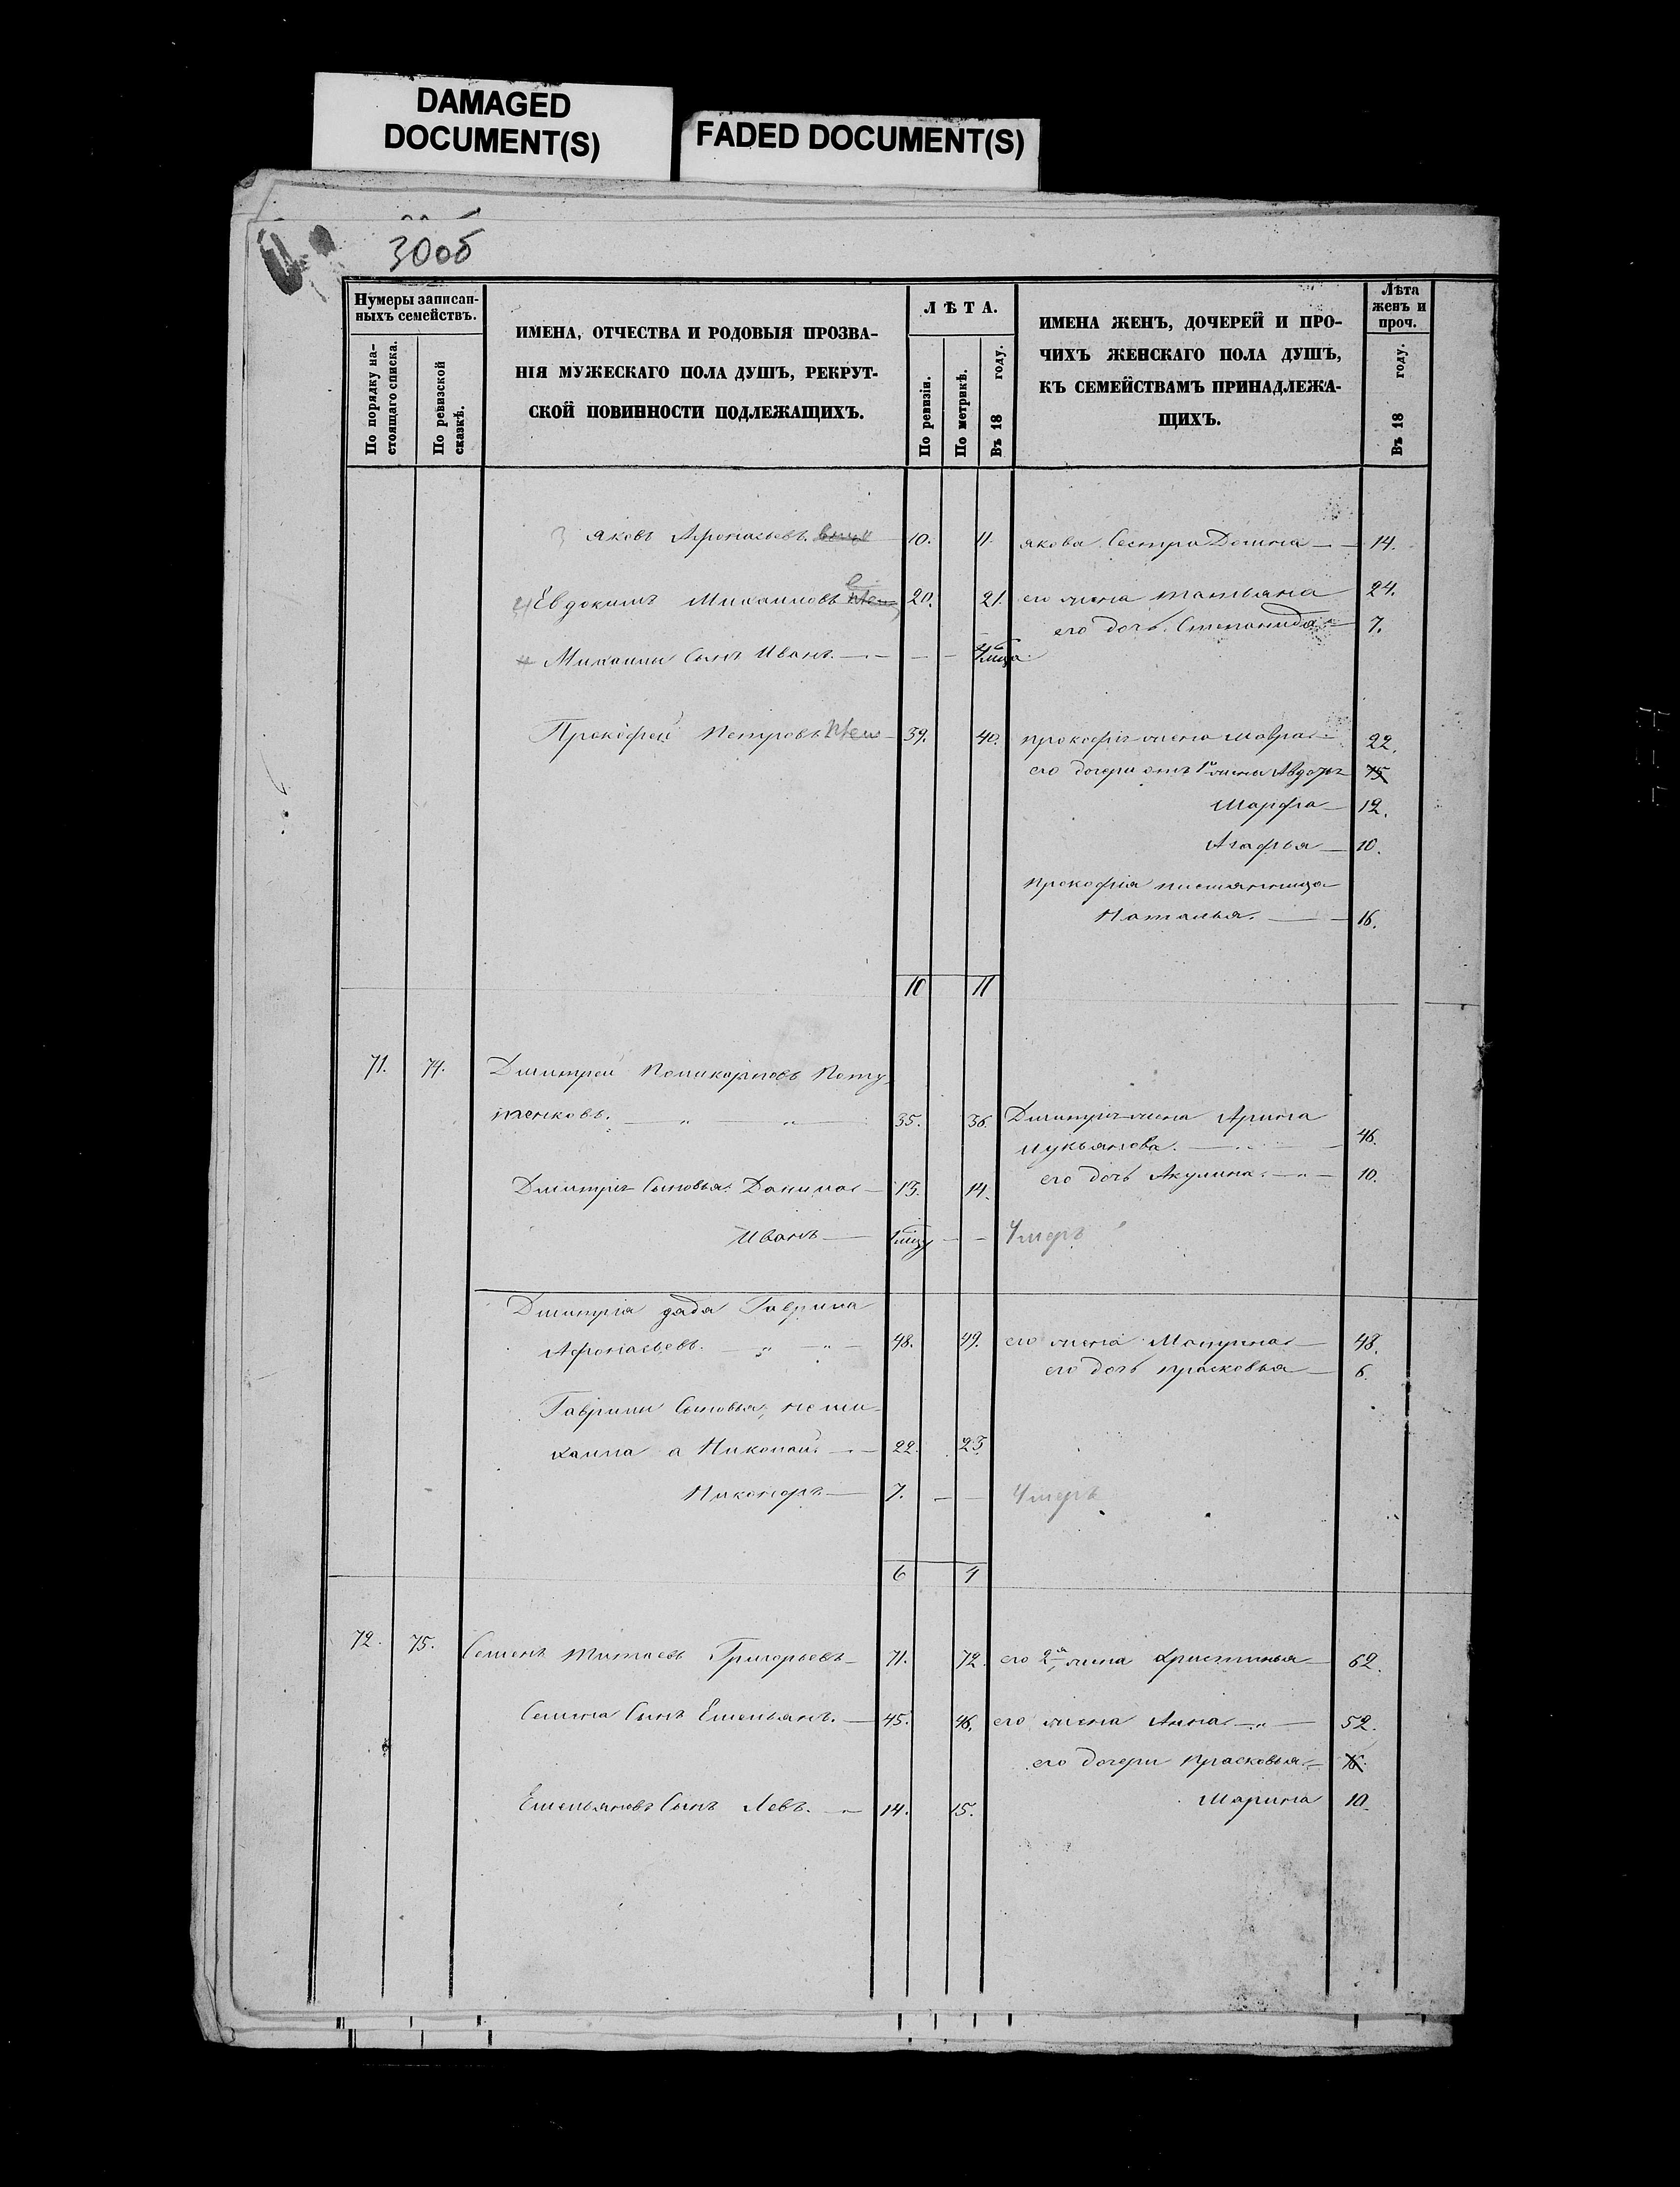 DAMAGED
DOCUMENT(S)
FADED DOCUMENT(S)
30об
Нумеры записан-
ныхъ семействъ.
По порядку на-
стоящаго списка.
По ревизской
сказкѣ.
ИМЕНА, ОТЧЕСТВА И РОДОВЫЯ ПРОЗВА-
НІЯ МУЖЕСКАГО ПОЛА ДУШЪ, РЕКРУТ-
СКОЙ ПОВИННОСТИ ПОДЛЕЖАЩИХЪ.
ЛѢТА.
По ревизіи.
По метрикѣ.
Въ 18 году.
ИМЕНА ЖЕНЪ, ДОЧЕРЕЙ И ПРО-
ЧИХЪ ЖЕНСКАГО ПОЛА ДУШЪ,
КЪ СЕМЕЙСТВАМЪ ПРИНАДЛЕЖА-
ЩИХЪ.
Лѣта
женъ и
проч.
Въ 18 году.
3 Яковъ Афонасьевъ 10. 11. Якова Сестра Домна 14.
Евдокимъ Михаиловъ 20. 21. его жена Татьяна 24.
его дочь Степанида 7.
Михаила Сынъ Иванъ
Прокофей Петровъ 39. 40. Прокофія жена Мавра 22.
его дочери отъ 1й жены Авдотья 15
Марфа 12.
Агафья 10.
Прокофія племянница
Наталья. 16.
10 11
71. 74. Дмитрей Поликарповъ Полу-
35. 36. Дмитрія жена Арина
Лукьянова. 46.
Дмитрія Сыновья: Данила 13. 14. его дочь Акулина 10.
Иванъ Умеръ
Дмитрія дядя Гаврила
Афонасьевъ. 48. 49. его жена Матрина 48.
его дочь Прасковья 6.
Гаврилы Сыновья: не Ми-
хаила а Николай 22. 23.
Никоноръ 7. Умеръ
6 4
72. 75. Семенъ Титовъ Григорьевъ 71. 72. его 2я жена Христинья 62.
Семена Сынъ Емельянъ. 45. 46. его жена Анна 52.
его дочери Прасковья 16.
Емельяновъ Сынъ Левъ. 14. 15. Марина 10.